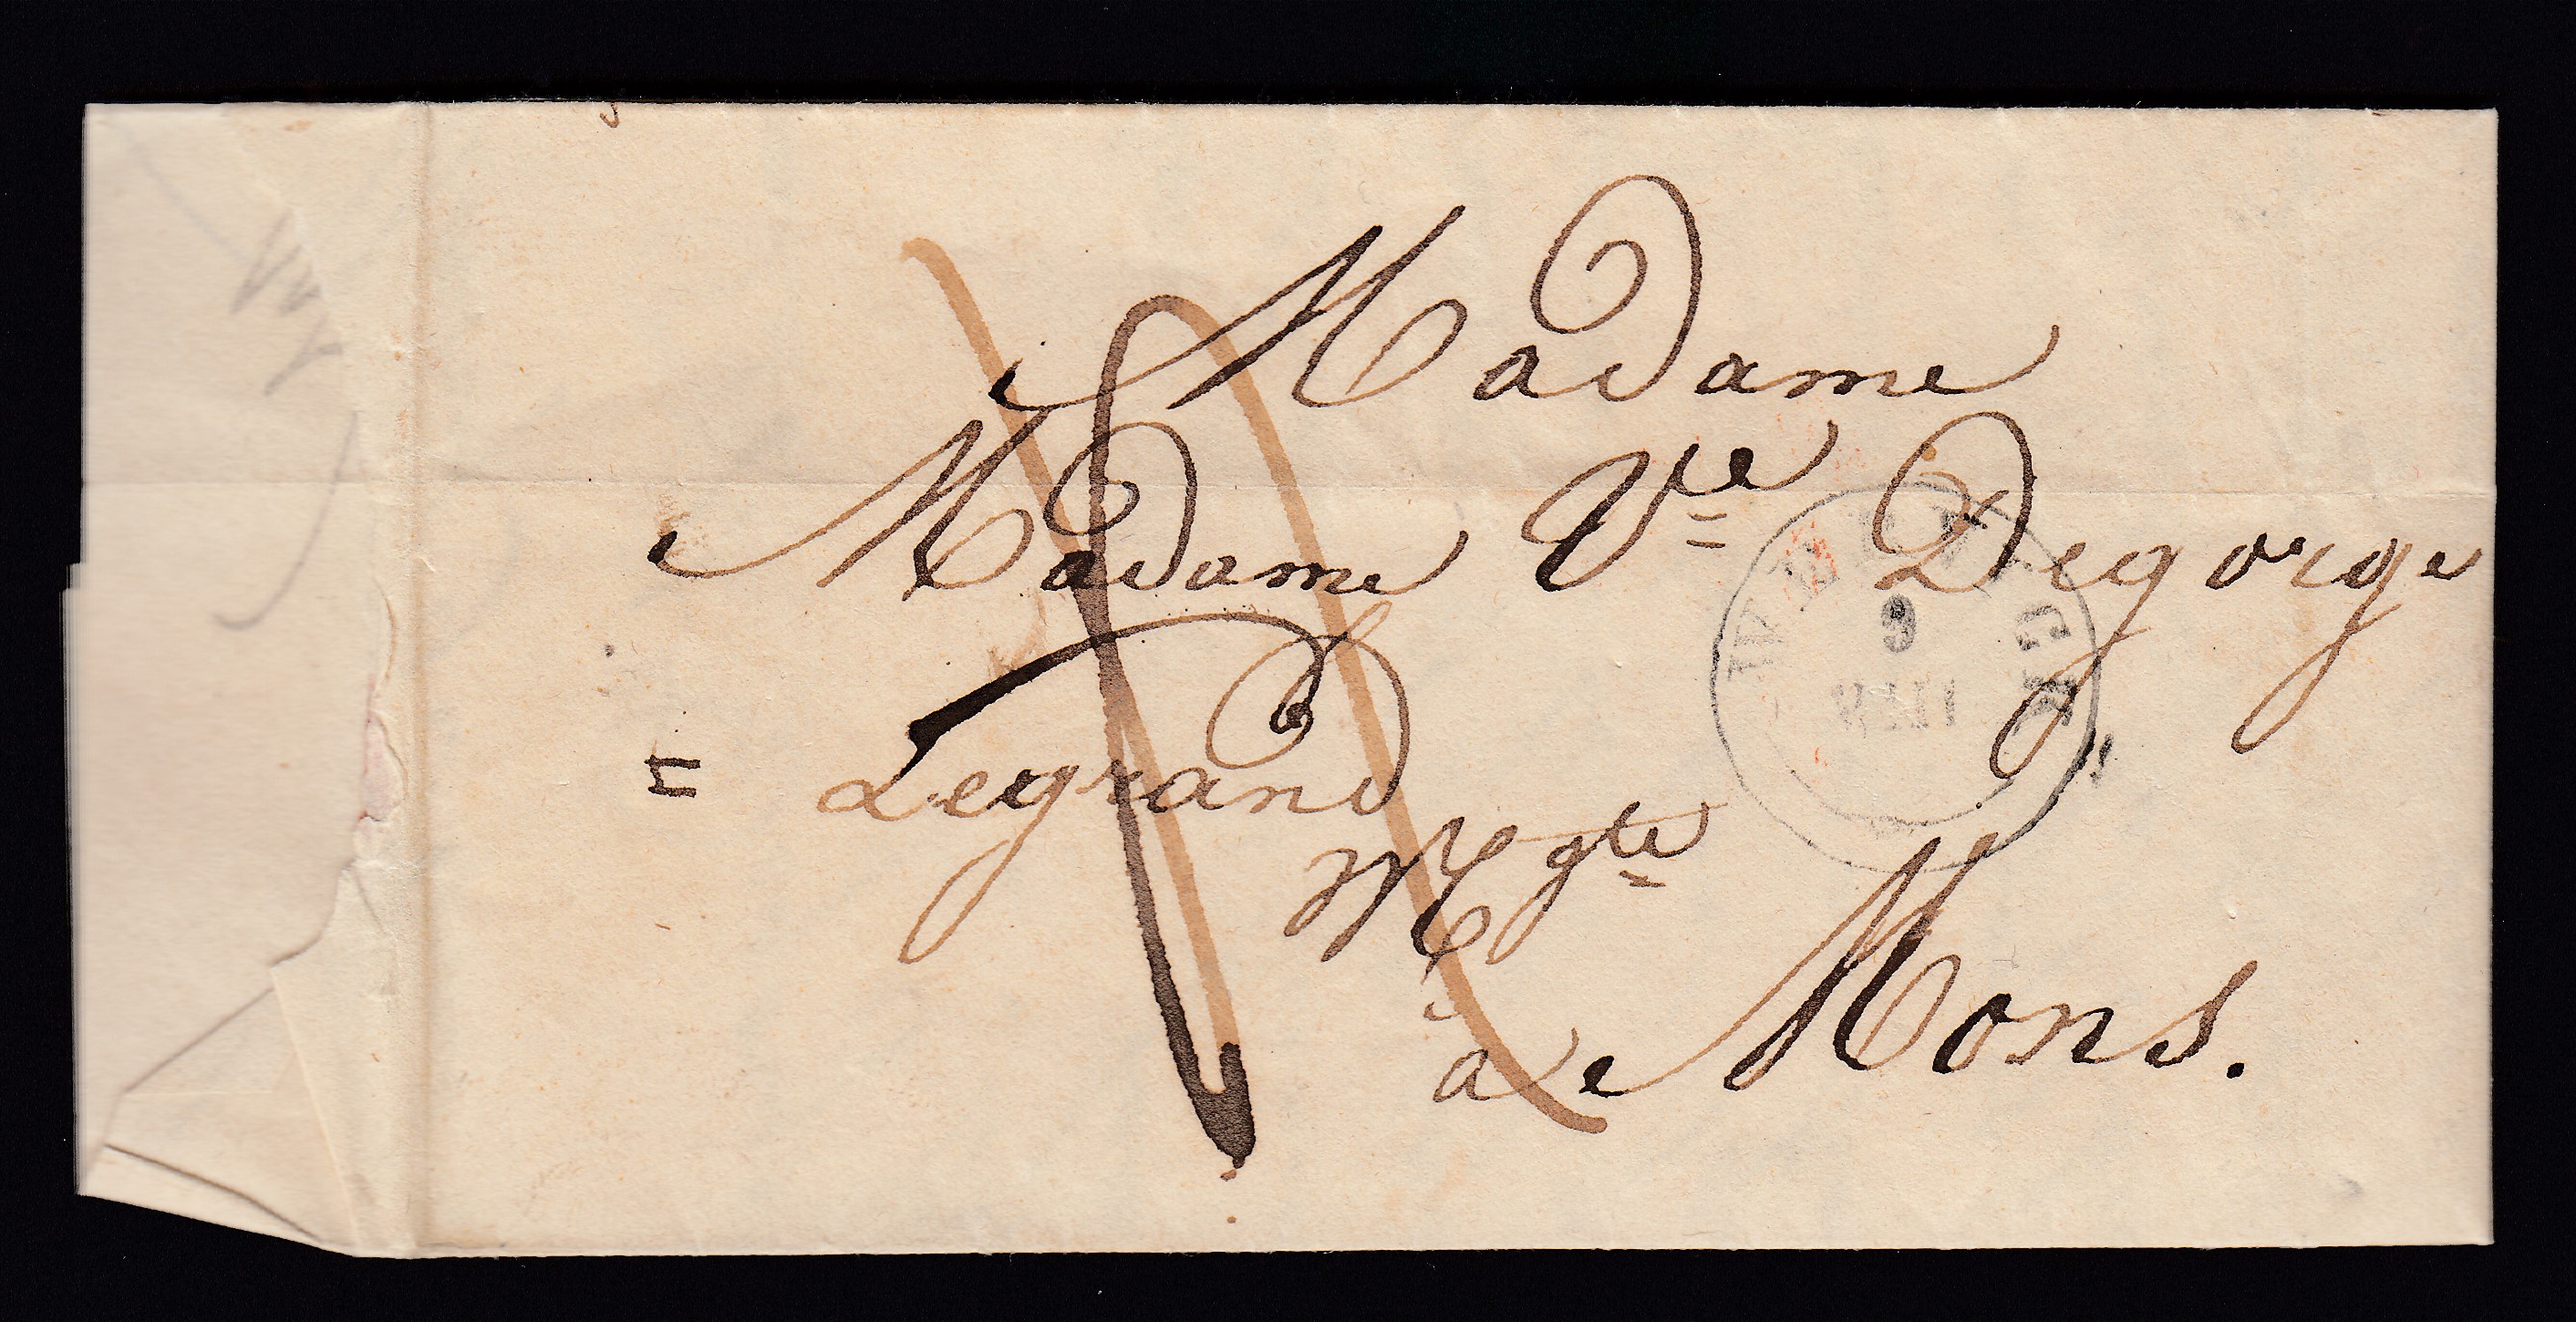 Madame
Madame Ve Degorge
= Legrand
Mgte
a Mons.
9